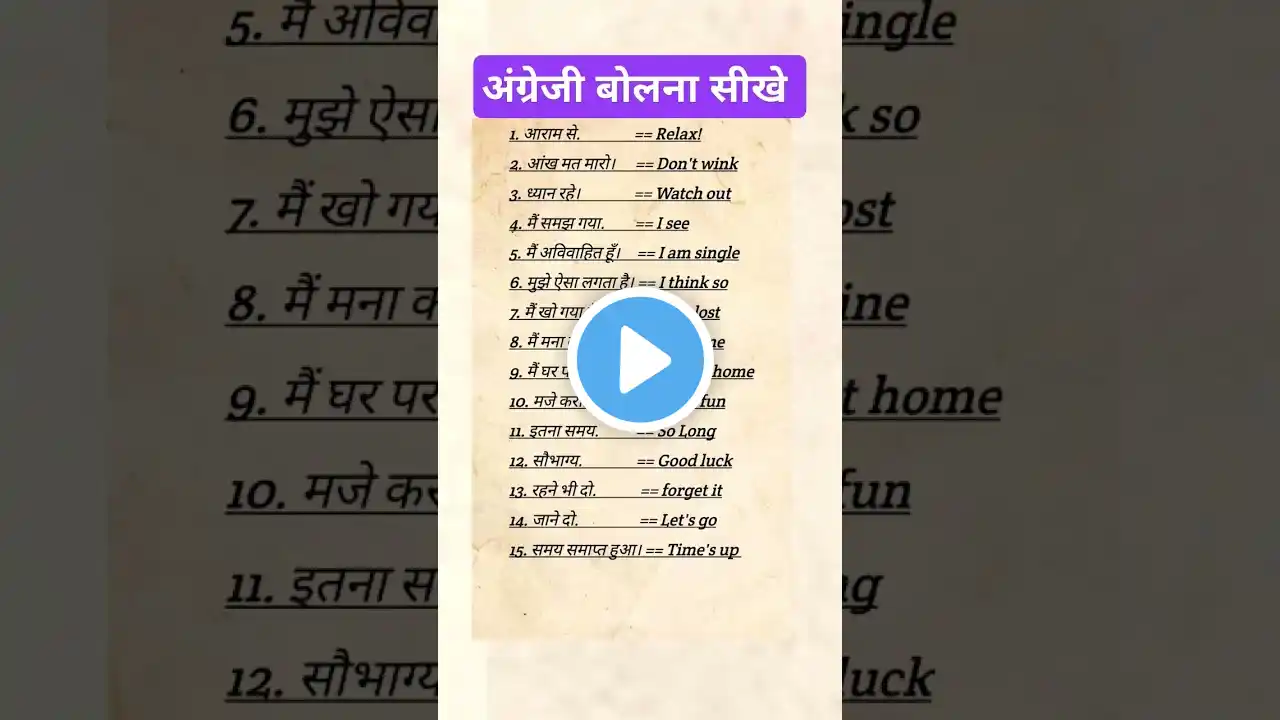 अंग्रेजी बोलना सीखे
1. आराम से. == Relax!
2. आंख मत मारो। == Don't wink
3. ध्यान रहे। == Watch out
4. मैं समझ गया. == I see
5. मैं अविवाहित हूँ। == I am single
6. मुझे ऐसा लगता है। == I think so
7. मैं खो गया lost
8. मैं मना
9. मैं घर home
10. मजे fun
11. इतना समय. == So Long
12. सौभाग्य. == Good luck
13. रहने भी दो. == forget it
14. जाने दो. == Let's go
15. समय समाप्त हुआ। == Time's up
5. मैं
6. मुझे so
7. मैं खो
8. मैं मना
9. मैं घर पर home
10. मजे fun
11. इतना
12.